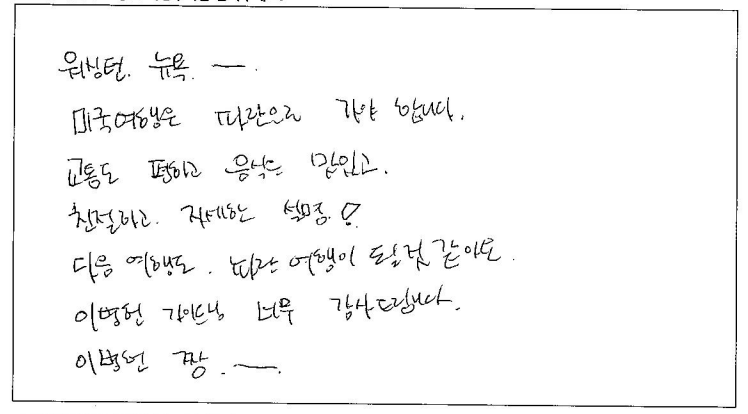 워싱턴. 뉴욕. ㅡ.
미국여행은 파란으로 가야 합니다.
교통도 편하고 음식도 맛있고.
친절하고. 자세한 설명.!
다음 여행도. 파란 여행이 될것 같아요.
이병헌 가이드님 너무 감사드립니다.
이병헌 짱. ㅡ.